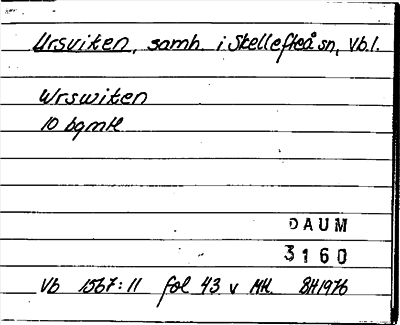 Ursviken, samh. i Skellefteå sn, Vb.l.
Wrswiken
10 bgmtl
DAUM
3160
Vb 1567:11 fol 43 v MH. BH1976